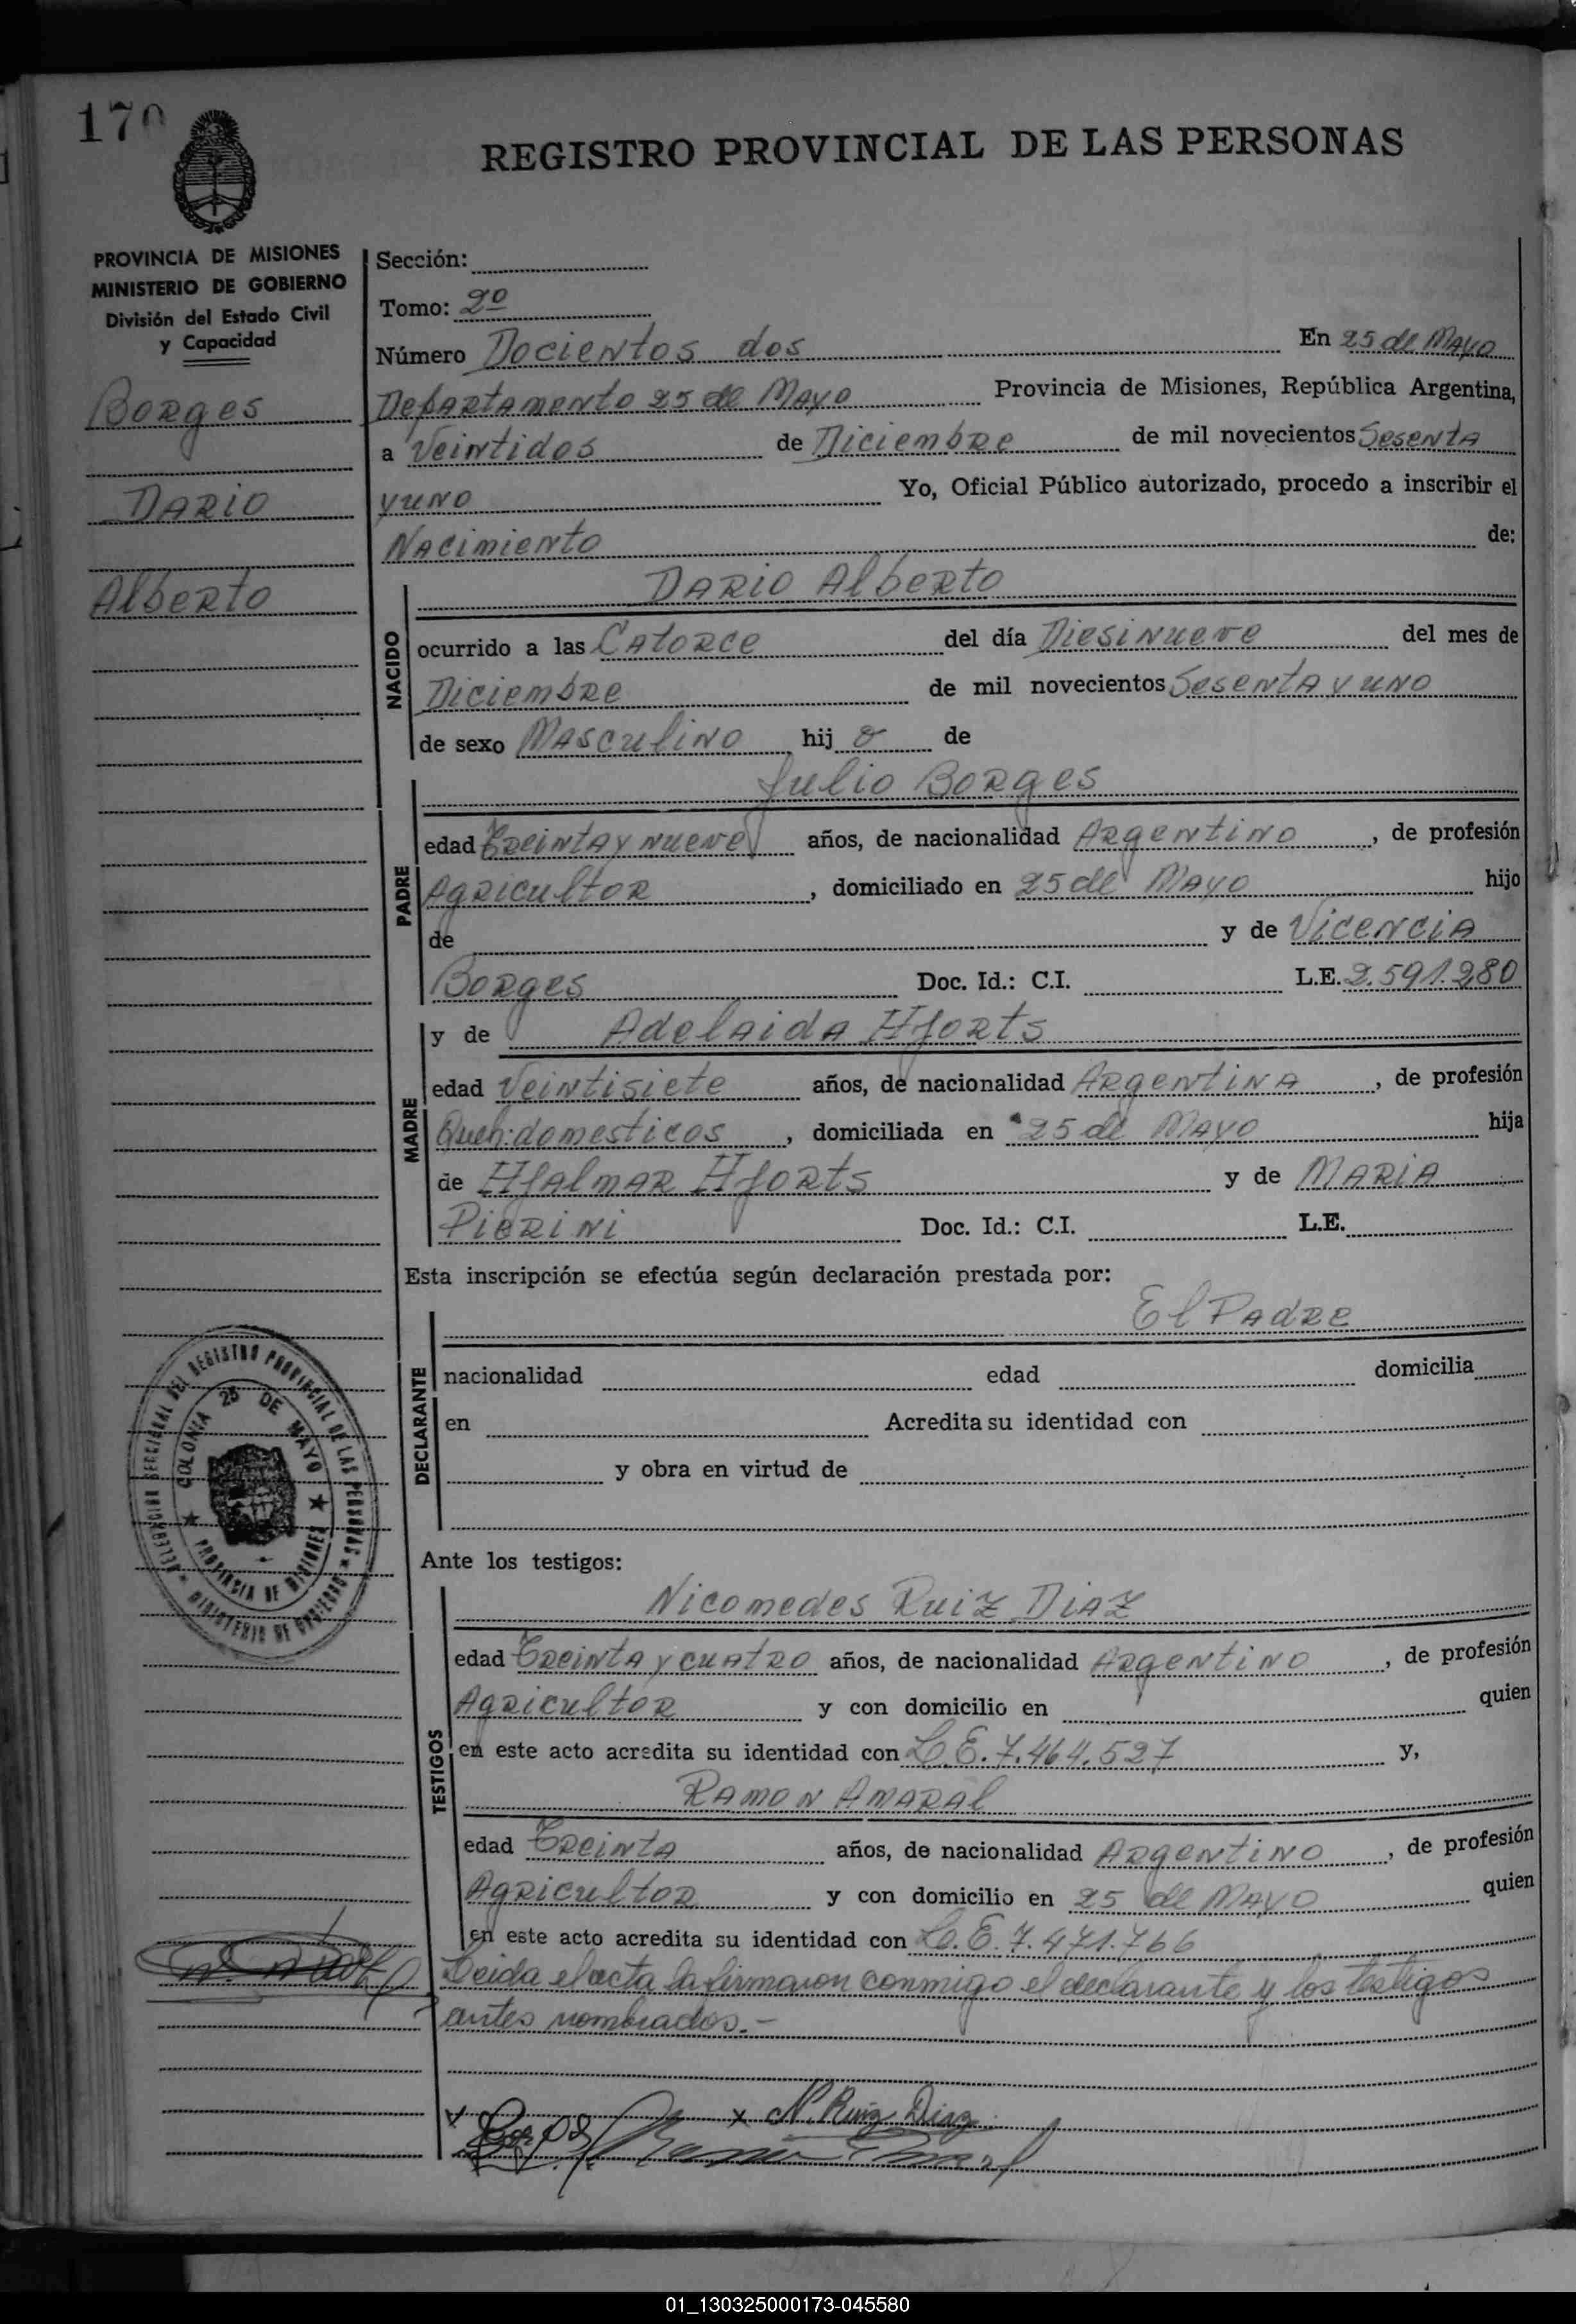 170
REGISTRO PROVINCIAL DE LAS PERSONAS
PROVINCIA DE MISIONES
MINISTERIO DE GOBIERNO
División del Estado Civil
y Capacidad
Borges
Dario
Alberto
Sección:
Tomo: 2º
Número Docientos dos En 25 de Mayo
Departamento 25 de Mayo Provincia de Misiones, República Argentina,
a Veintidos de Diciembre de mil novecientos Sesenta
y uno Yo, Oficial Público autorizado, procedo a inscribir el
Nacimiento de:
NACIDO
Dario Alberto
ocurrido a las Catorce del día Diesinueve del mes de
Diciembre de mil novecientos Sesenta y uno
de sexo Masculino hij o de
PADRE
Julio Borges
edad Treinta y nueve años, de nacionalidad Argentino, de profesión
Agricultor, domiciliado en 25 de Mayo hijo
de y de Vicencia
Borges Doc. Id.: C.I. L.E. 2.591.280
MADRE
y de Adelaida Hjorts
edad Veintisiete años, de nacionalidad Argentina, de profesión
Queh: domesticos, domiciliada en 25 de Mayo hija
de Hjalmar Hjorts y de Maria
Pierini Doc. Id.: C.I. L.E.
Esta inscripción se efectúa según declaración prestada por:
DECLARANTE
El Padre
nacionalidad edad domicilia
en Acredita su identidad con
y obra en virtud de
DELEGACION SECCIONAL DEL REGISTRO PROVINCIAL DE LAS PERSONAS
MINISTERIO DE GOBIERNO
COLONIA 25 DE MAYO
PROVINCIA DE MISIONES
Ante los testigos:
TESTIGOS
Nicomedes Ruiz Diaz
edad Treinta y cuatro años, de nacionalidad Argentino, de profesión
Agricultor y con domicilio en quien
en este acto acredita su identidad con L.E. 7.464.527 y,
Ramon Amaral
edad Treinta años, de nacionalidad Argentino, de profesión
Agricultor y con domicilio en 25 de Mayo quien
en este acto acredita su identidad con L.E. 7.471.766
Leida el acta la firmaron conmigo el declarante y los testigos
antes nombrados.-
x N. Ruiz Diaz
Borges Ramon Amaral
01_130325000173-045580